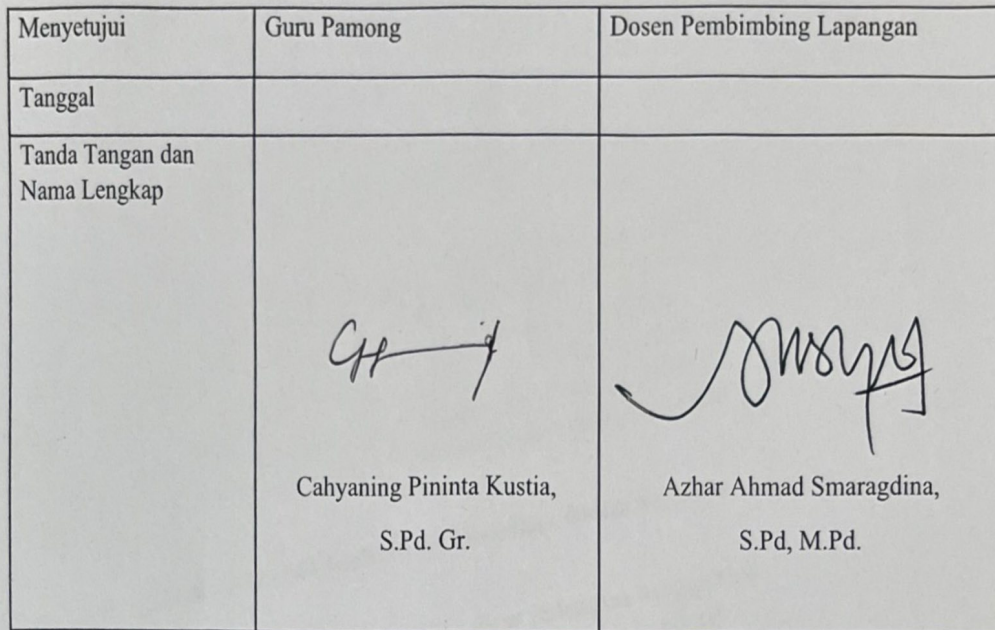 Menyetujui
Guru Pamong
Dosen Pembimbing Lapangan
Tanggal
Tanda Tangan dan
Nama Lengkap
Cahyaning Pininta Kustia,
S.Pd. Gr.
Azhar Ahmad Smaragdina,
S.Pd, M.Pd.